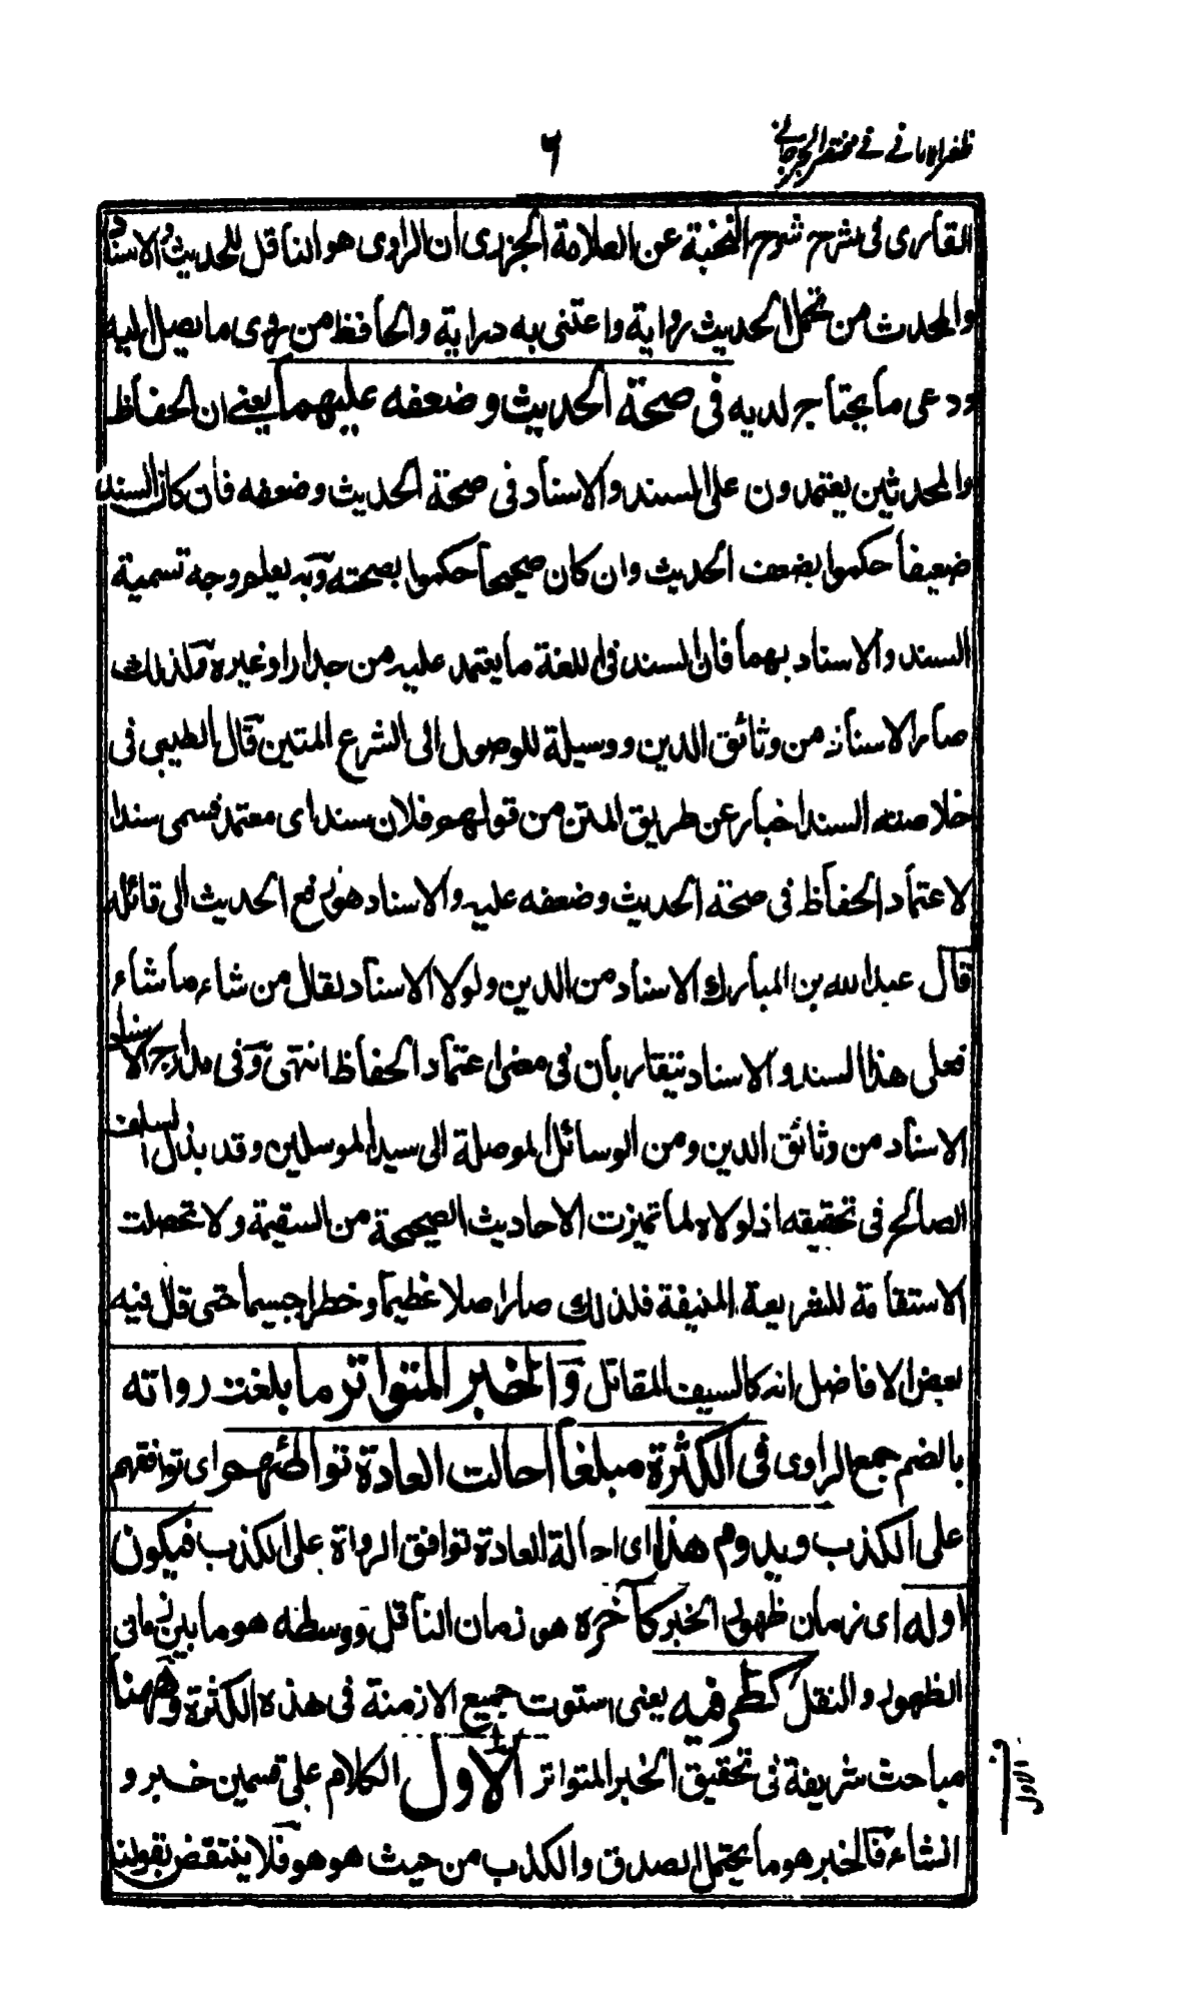 ظفر الاماني في مختصر الجرجاني
٦
القارى فى شرح شرح النخبة عن العلامة الجزرى ان الراوى هو الناقل للحديث بالاسناد
والمحدث من تحمل الحديث رواية واعتنى به دراية والحافظ من روى ما يصل اليه
ودعى ما يحتاج لديه فى صحة الحديث وضعفه عليهما يعنے ان الحفاظ
والمحدثين يعتمدون على السند والاسناد فى صحة الحديث وضعفه فان كان السند
ضعيفا حكموا بضعف الحديث وان كان صحيحا حكموا بصحته وبه يعلم وجه تسمية
السند والاسناد بهما فان السند فى اللغة ما يعتمد عليه من جدار او غيره ولذلك
صار الاسناد من وثائق الدين ووسيلة للوصول الى الشرع المتين قال الطيبى فى
خلاصته السند اخبار عن طريق المتن من قولهم فلان سند اى معتمد فسمى سندا
لاعتماد الحفاظ فى صحة الحديث وضعفه عليه والاسناد هو رفع الحديث الى قائله
قال عبد الله بن المبارك الاسناد من الدين ولولا الاسناد لقال من شاء ما شاء
فعلى هذا السند والاسناد يتقاربان فى معنى اعتماد الحفاظ انتهى وفى مدارج الاسناد
الاسناد من وثائق الدين ومن الوسائل الموصلة الى سيد المرسلين وقد بذل السلف
الصالح فى تحقيقه اذ لولاه لما تميزت الاحاديث الصحيحة من السقيمة ولا تحصلت
الاستقامة للشريعة المنيفة فلذلك صار اصلا عظيما وخطرا جسيما حتى قال فيه
بعض الافاضل انه كالسيف للمقاتل والخبر المتواتر ما بلغت رواته
بالضم جمع الراوى فى الكثرة مبلغا احالت العادة تواطئهم اى توافقهم
على الكذب ويدوم هذا اى احالة العادة توافق الرواة على الكذب فيكون
اوله اى زمان ظهور الخبر كآخره هو زمان الناقل ووسطه هو ما بين زمانى
الظهور والنقل كطرفيه يعنى استوت جميع الازمنة فى هذه الكثرة وههنا
مباحث شريفة فى تحقيق الخبر المتواتر الاول الكلام على قسمين خبر و
انشاء فالخبر هو ما يحتمل الصدق والكذب من حيث هو هو فلا ينتقض بقولنا
الاول